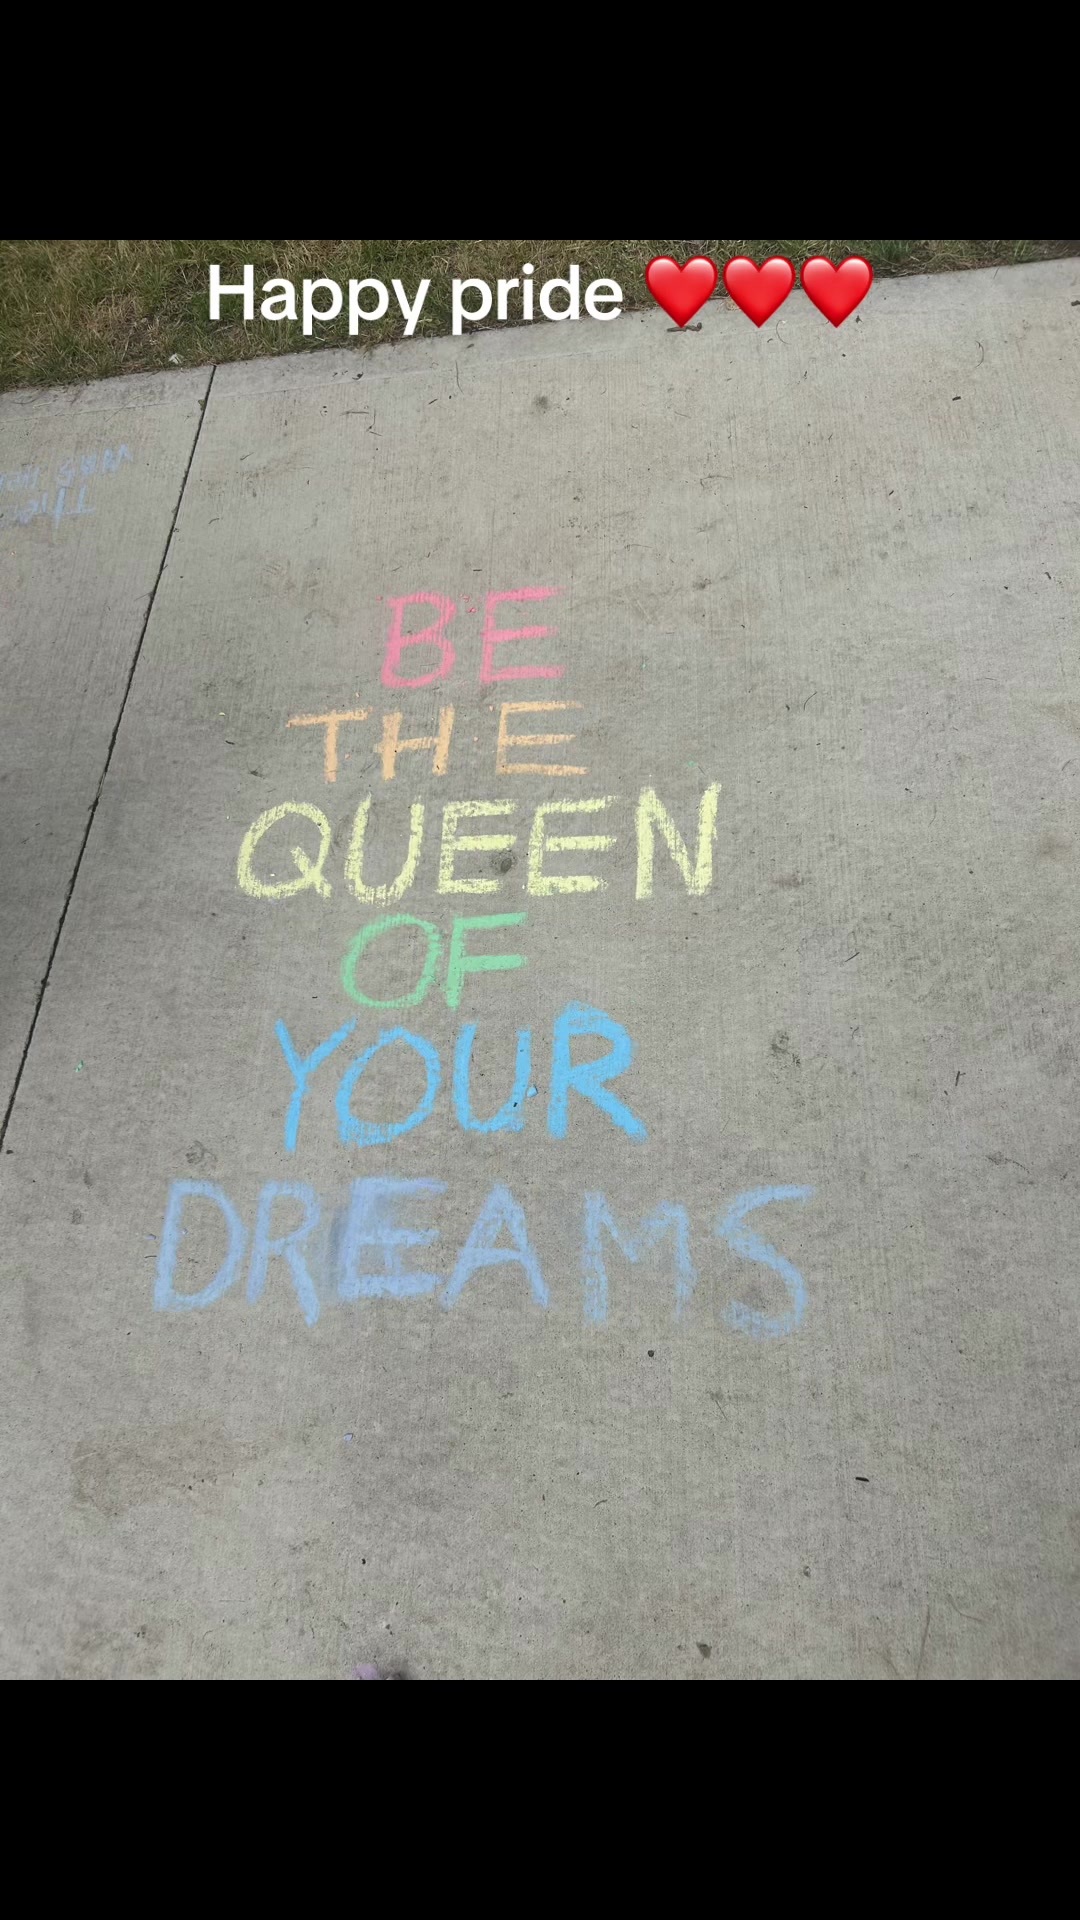 Happy pride ❤️❤️❤️
BE
THE
QUEEN
OF
YOUR
DREAMS